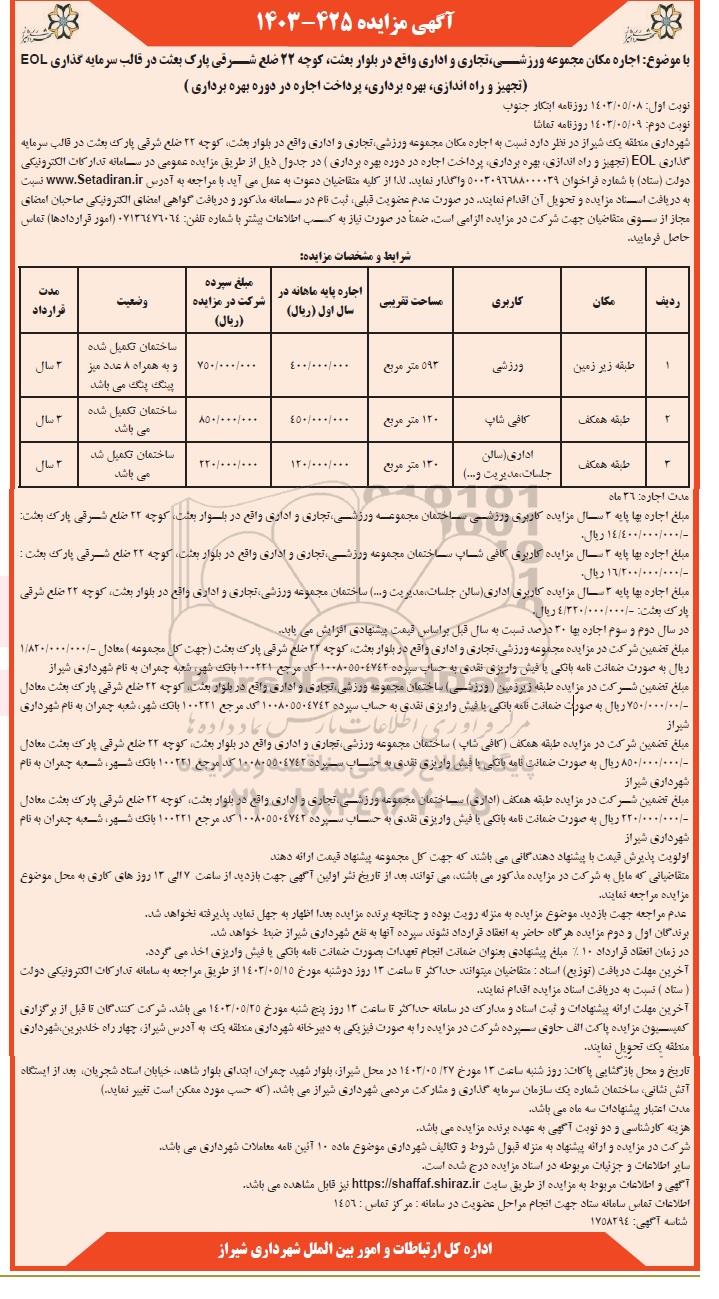 آگهی مزایده ۴۲۵-۱۴۰۳
با موضوع: اجاره مکان مجموعه ورزشی،تجاری و اداری واقع در بلوار بعثت، کوچه ۲۲ ضلع شرقی پارک بعثت در قالب سرمایه گذاری EOL
(تجهیز و راه اندازی، بهره برداری، پرداخت اجاره در دوره بهره برداری )
نوبت اول: ۱۴۰۳/۰۵/۰۸ روزنامه ابتکار جنوب
نوبت دوم: ۱۴۰۳/۰۵/۰۹ روزنامه تماشا
شهرداری منطقه یک شیراز در نظر دارد نسبت به اجاره مکان مجموعه ورزشی،تجاری و اداری واقع در بلوار بعثت، کوچه ۲۲ ضلع شرقی پارک بعثت در قالب سرمایه
گذاری EOL (تجهیز و راه اندازی، بهره برداری، پرداخت اجاره در دوره بهره برداری ) در جدول ذیل از طریق مزایده عمومی در سامانه تدارکات الکترونیکی
دولت (ستاد) با شماره فراخوان ۵۰۰۳۰۹۶۶۸۸۰۰۰۰۳۹ واگذار نماید. لذا از کلیه متقاضیان دعوت به عمل می آید با مراجعه به آدرس www.Setadiran.ir نسبت
به دریافت اسناد مزایده و تحویل آن اقدام نمایند. در صورت عدم عضویت قبلی، ثبت نام در سامانه مذکور و دریافت گواهی امضای الکترونیکی صاحبان امضای
مجاز از سوی متقاضیان جهت شرکت در مزایده الزامی است. ضمناً در صورت نیاز به کسب اطلاعات بیشتر با شماره تلفن: ۰۷۱۳۶۴۷۶۰۶۴ (امور قراردادها) تماس
حاصل فرمایید.
شرایط و مشخصات مزایده:
ردیف مکان کاربری مساحت تقریبی اجاره پایه ماهانه در سال اول (ریال) مبلغ سپرده شرکت در مزایده (ریال) وضعیت مدت قرارداد
۱ طبقه زیر زمین ورزشی ۵۹۳ متر مربع ۴۰۰/۰۰۰/۰۰۰ ۷۵۰/۰۰۰/۰۰۰ ساختمان تکمیل شده و به همراه ۸ عدد میز پینگ پنگ می باشد ۳ سال
۲ طبقه همکف کافی شاپ ۱۲۰ متر مربع ۴۵۰/۰۰۰/۰۰۰ ۸۵۰/۰۰۰/۰۰۰ ساختمان تکمیل شده می باشد ۳ سال
۳ طبقه همکف اداری(سالن جلسات،مدیریت و...) ۱۳۰ متر مربع ۱۲۰/۰۰۰/۰۰۰ ۲۲۰/۰۰۰/۰۰۰ ساختمان تکمیل شد می باشد ۳ سال
مدت اجاره: ۳۶ ماه
مبلغ اجاره بها پایه ۳ سال مزایده کاربری ورزشی ساختمان مجموعه ورزشی،تجاری و اداری واقع در بلوار بعثت، کوچه ۲۲ ضلع شرقی پارک بعثت:
-/۱۴/۴۰۰/۰۰۰/۰۰۰ ریال.
مبلغ اجاره بها پایه ۳ سال مزایده کاربری کافی شاپ ساختمان مجموعه ورزشی،تجاری و اداری واقع در بلوار بعثت، کوچه ۲۲ ضلع شرقی پارک بعثت :
-/۱۶/۲۰۰/۰۰۰/۰۰۰ ریال.
مبلغ اجاره بها پایه ۳ سال مزایده کاربری اداری(سالن جلسات،مدیریت و...) ساختمان مجموعه ورزشی،تجاری و اداری واقع در بلوار بعثت، کوچه ۲۲ ضلع شرقی
پارک بعثت: -/۴/۳۲۰/۰۰۰/۰۰۰ ریال.
در سال دوم و سوم اجاره بها ۳۰ درصد نسبت به سال قبل براساس قیمت پیشنهادی افزایش می یابد.
مبلغ تضمین شرکت در مزایده مجموعه ورزشی،تجاری و اداری واقع در بلوار بعثت، کوچه ۲۲ ضلع شرقی پارک بعثت (جهت کل مجموعه ) معادل -/۱/۸۲۰/۰۰۰/۰۰۰
ریال به صورت ضمانت نامه بانکی یا فیش واریزی نقدی به حساب سپرده ۱۰۰۸۰۵۵۰۴۷۴۲ کد مرجع ۱۰۰۲۲۱ بانک شهر، شعبه چمران به نام شهرداری شیراز
مبلغ تضمین شرکت در مزایده طبقه زیرزمین (ورزشی) ساختمان مجموعه ورزشی،تجاری و اداری واقع در بلوار بعثت، کوچه ۲۲ ضلع شرقی پارک بعثت معادل
-/۷۵۰/۰۰۰/۰۰۰ ریال به صورت ضمانت نامه بانکی یا فیش واریزی نقدی به حساب سپرده ۱۰۰۸۰۵۵۰۴۷۴۲ کد مرجع ۱۰۰۲۲۱ بانک شهر، شعبه چمران به نام شهرداری
شیراز
مبلغ تضمین شرکت در مزایده طبقه همکف (کافی شاپ ) ساختمان مجموعه ورزشی،تجاری و اداری واقع در بلوار بعثت، کوچه ۲۲ ضلع شرقی پارک بعثت معادل
-/۸۵۰/۰۰۰/۰۰۰ ریال به صورت ضمانت نامه بانکی یا فیش واریزی نقدی به حساب سپرده ۱۰۰۸۰۵۵۰۴۷۴۲ کد مرجع ۱۰۰۲۲۱ بانک شهر، شعبه چمران به نام
شهرداری شیراز
مبلغ تضمین شرکت در مزایده طبقه همکف (اداری) ساختمان مجموعه ورزشی،تجاری و اداری واقع در بلوار بعثت، کوچه ۲۲ ضلع شرقی پارک بعثت معادل
-/۲۲۰/۰۰۰/۰۰۰ ریال به صورت ضمانت نامه بانکی یا فیش واریزی نقدی به حساب سپرده ۱۰۰۸۰۵۵۰۴۷۴۲ کد مرجع ۱۰۰۲۲۱ بانک شهر، شعبه چمران به نام
شهرداری شیراز
اولویت پذیرش قیمت با پیشنهاد دهندگانی می باشند که جهت کل مجموعه پیشنهاد قیمت ارائه دهند
متقاضیانی که مایل به شرکت در مزایده مذکور می باشند، می توانند بعد از تاریخ نشر اولین آگهی جهت بازدید از ساعت ۷ الی ۱۳ روز های کاری به محل موضوع
مزایده مراجعه نمایند.
عدم مراجعه جهت بازدید موضوع مزایده به منزله رویت بوده و چنانچه برنده مزایده بعدا اظهار به جهل نماید پذیرفته نخواهد شد.
برندگان اول و دوم مزایده هرگاه حاضر به انعقاد قرارداد نشوند سپرده آنها به نفع شهرداری شیراز ضبط خواهد شد.
در زمان انعقاد قرارداد ۱۰ ٪ مبلغ پیشنهادی بعنوان ضمانت انجام تعهدات بصورت ضمانت نامه بانکی یا فیش واریزی اخذ می گردد.
آخرین مهلت دریافت (توزیع) اسناد : متقاضیان میتوانند حداکثر تا ساعت ۱۳ روز دوشنبه مورخ ۱۴۰۳/۰۵/۱۵ از طریق مراجعه به سامانه تدارکات الکترونیکی دولت
( ستاد ) نسبت به دریافت اسناد مزایده اقدام نمایند.
آخرین مهلت ارائه پیشنهادات و ثبت اسناد و مدارک در سامانه حداکثر تا ساعت ۱۳ روز پنج شنبه مورخ ۱۴۰۳/۰۵/۲۵ می باشد. شرکت کنندگان تا قبل از برگزاری
کمیسیون مزایده پاکت الف حاوی سپرده شرکت در مزایده را به صورت فیزیکی به دبیرخانه شهرداری منطقه یک به آدرس شیراز، چهار راه خلدبرین،شهرداری
منطقه یک تحویل نمایند.
تاریخ و محل بازگشایی پاکات: روز شنبه ساعت ۱۳ مورخ ۱۴۰۳/۰۵/۲۷ در محل شیراز، بلوار شهید چمران، ابتدای بلوار شاهد، خیابان استاد شجریان، بعد از ایستگاه
آتش نشانی، ساختمان شماره یک سازمان سرمایه گذاری و مشارکت مردمی شهرداری شیراز می باشد. (که حسب مورد ممکن است تغییر نماید.)
مدت اعتبار پیشنهادات سه ماه می باشد.
هزینه کارشناسی و دو نوبت آگهی به عهده برنده مزایده می باشد.
شرکت در مزایده و ارائه پیشنهاد به منزله قبول شروط و تکالیف شهرداری موضوع ماده ۱۰ آئین نامه معاملات شهرداری می باشد.
سایر اطلاعات و جزئیات مربوطه در اسناد مزایده درج شده است.
آگهی و اطلاعات مربوط به مزایده از طریق سایت https://shaffaf.shiraz.ir نیز قابل مشاهده می باشد.
اطلاعات تماس سامانه ستاد جهت انجام مراحل عضویت در سامانه : مرکز تماس : ۱۴۵۶
شناسه آگهی: ۱۷۵۸۲۹۴
اداره کل ارتباطات و امور بین الملل شهرداری شیراز